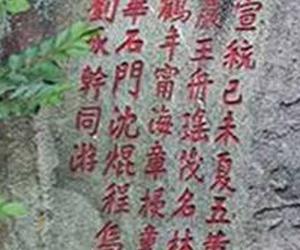 宣統己未夏五黃
巖王舟瑤茂名林
鶴年甯海章梫
華石門沈焜程烏
劉承幹同游